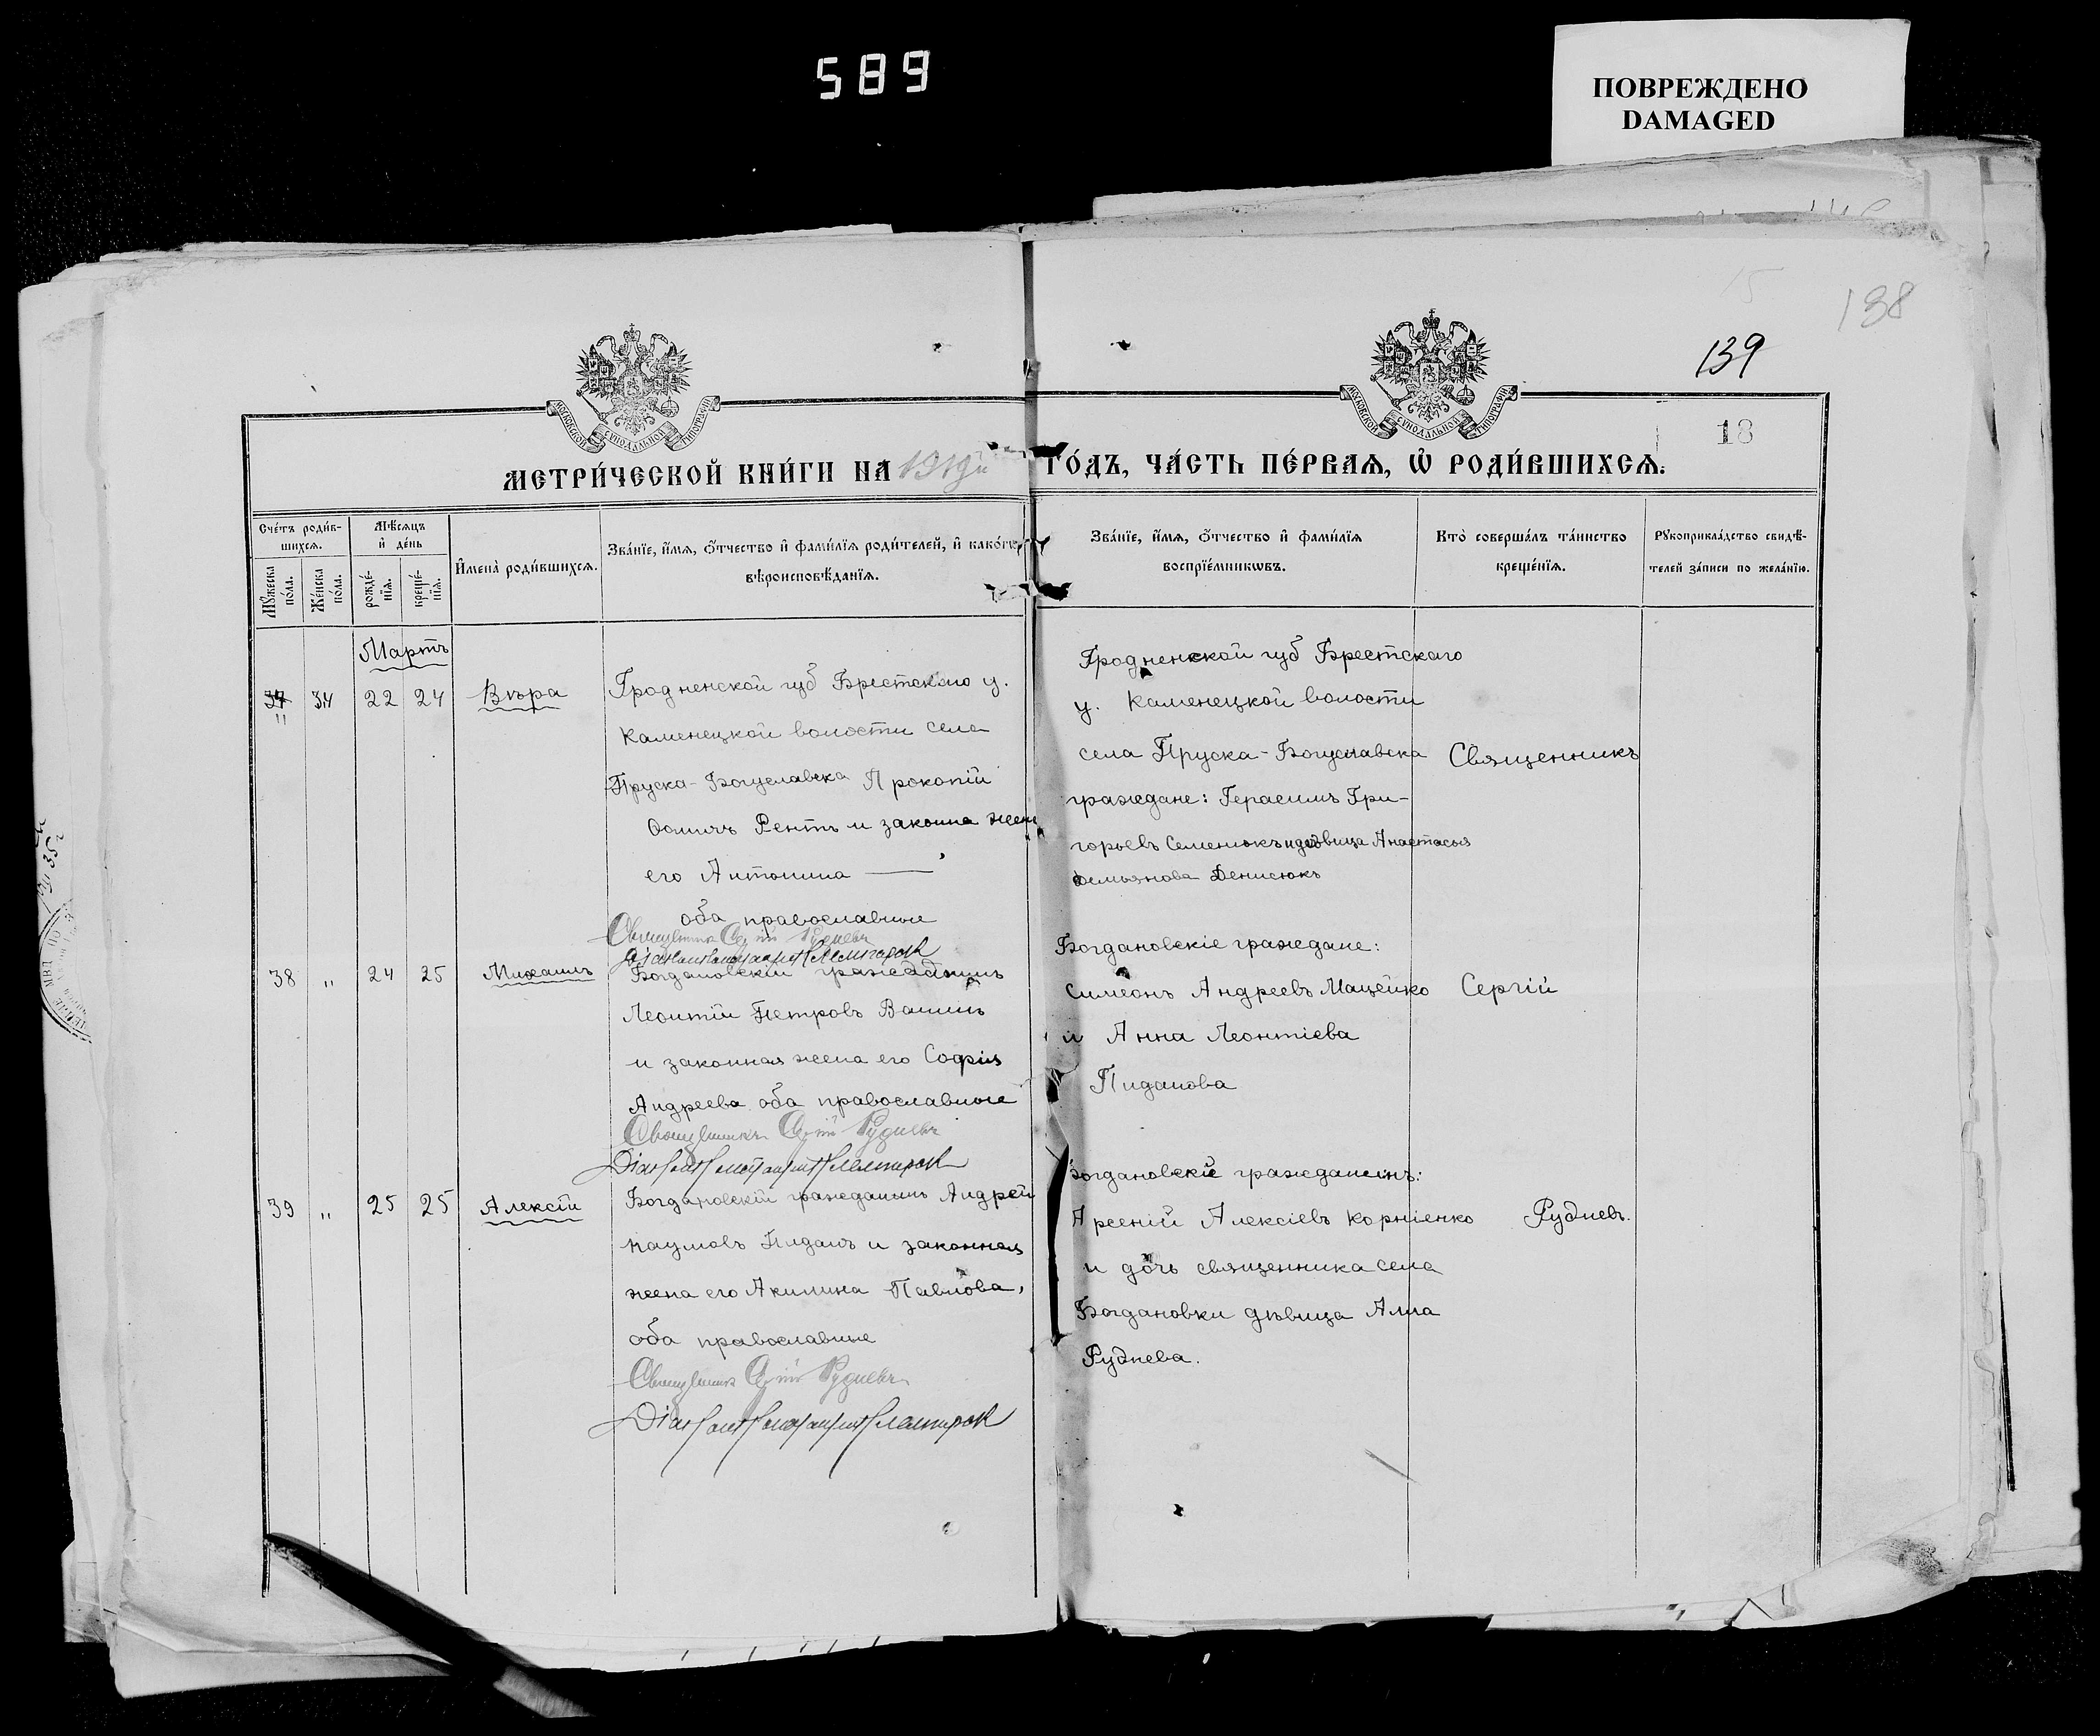 589
ПОВРЕЖДЕНО
DAMAGED
138
139
18
МОСКОВСКОЙ СѴНОДАЛЬНОЙ ТИПОГРАФІИ
МОСКОВСКОЙ СѴНОДАЛЬНОЙ ТИПОГРАФІИ
МЕТРИ́ЧЕСКОЙ КНИ́ГИ НА 1919й ГО́ДЪ, ЧА́СТЬ ПЕ́РВАЯ, Ѽ РОДИ́ВШИХСЯ.
Сче́тъ роди́в-
шихся.
Мꙋ́жеска по́ла.
Же́нска по́ла.
Мѣ́сяцъ и҆ де́нь
рожде́-
нїя.
креще́-
нїя.
И҆мена̀ роди́вшихся.
Зва́нїе, и҆́мя, ѻ҆́тчество и҆ фами́лїя роди́телей, и҆ како́гѡ
вѣроисповѣ́данїя.
Зва́нїе, и҆́мя, ѻ҆́тчество и҆ фами́лїя
воспрїе́мникѡвъ.
Кто̀ соверша́лъ та́инство
креще́нїя.
Рꙋкоприкла́дство свидѣ́-
телей за́писи по жела́нїю.
Мартъ
37 34 22 24 Вѣра
"
Гродненской губ Брестскаго у.
Каменецкой волости села
Пруска-Богуславска Прокопій
Ѳомичъ Рентъ и закона жена
его Антонина —
оба православные
Священникъ Сергій Рудневъ
Гродненской губ Брестскаго
у. Каменецкой волости
села Пруска-Богуславска
граждане: Герасимъ Гри-
горьевъ Семенюкъ и девица Анастасья
Демьянова Денисюкъ
Священникъ
38 " 24 25 Михаилъ
Богдановскій гражданинъ
Леонтій Петровъ Вашинъ
и законная жена его Софія
Андреева оба православные
Священникъ Сергій Рудневъ
Богдановскіе граждане:
Симеонъ Андреевъ Мацейко
и Анна Леонтіева
Пиданова
Сергій
39 " 25 25 Алексій
Богдановскій гражданинъ Андрей
Наумовъ Пиданъ и законная
жена его Акилина Павлова,
оба православные
Священникъ Сергій Рудневъ
Богдановскій гражданинъ:
Арсеній Алексіевъ Корніенко
и дочь священника села
Богдановки дѣвица Алла
Руднева.
Рудневъ.